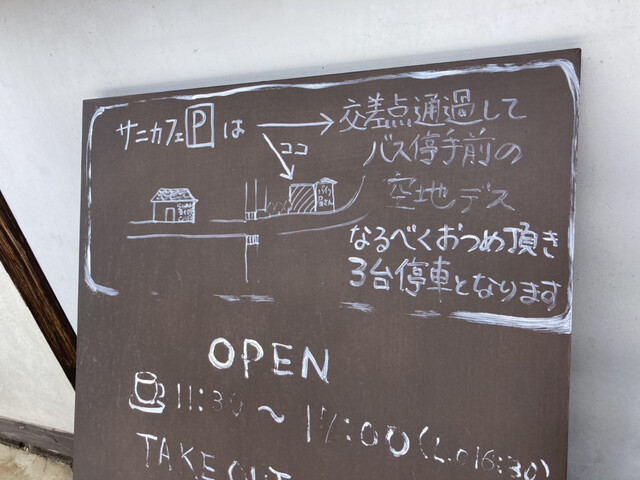 サニカフェPは → 交差点通過して
ココ
バス停手前の
空地デス
なるべくおつめ頂き
3台停車となります
OPEN
11:30 ~ 17:00(L.o16:30)
TAKE OUT